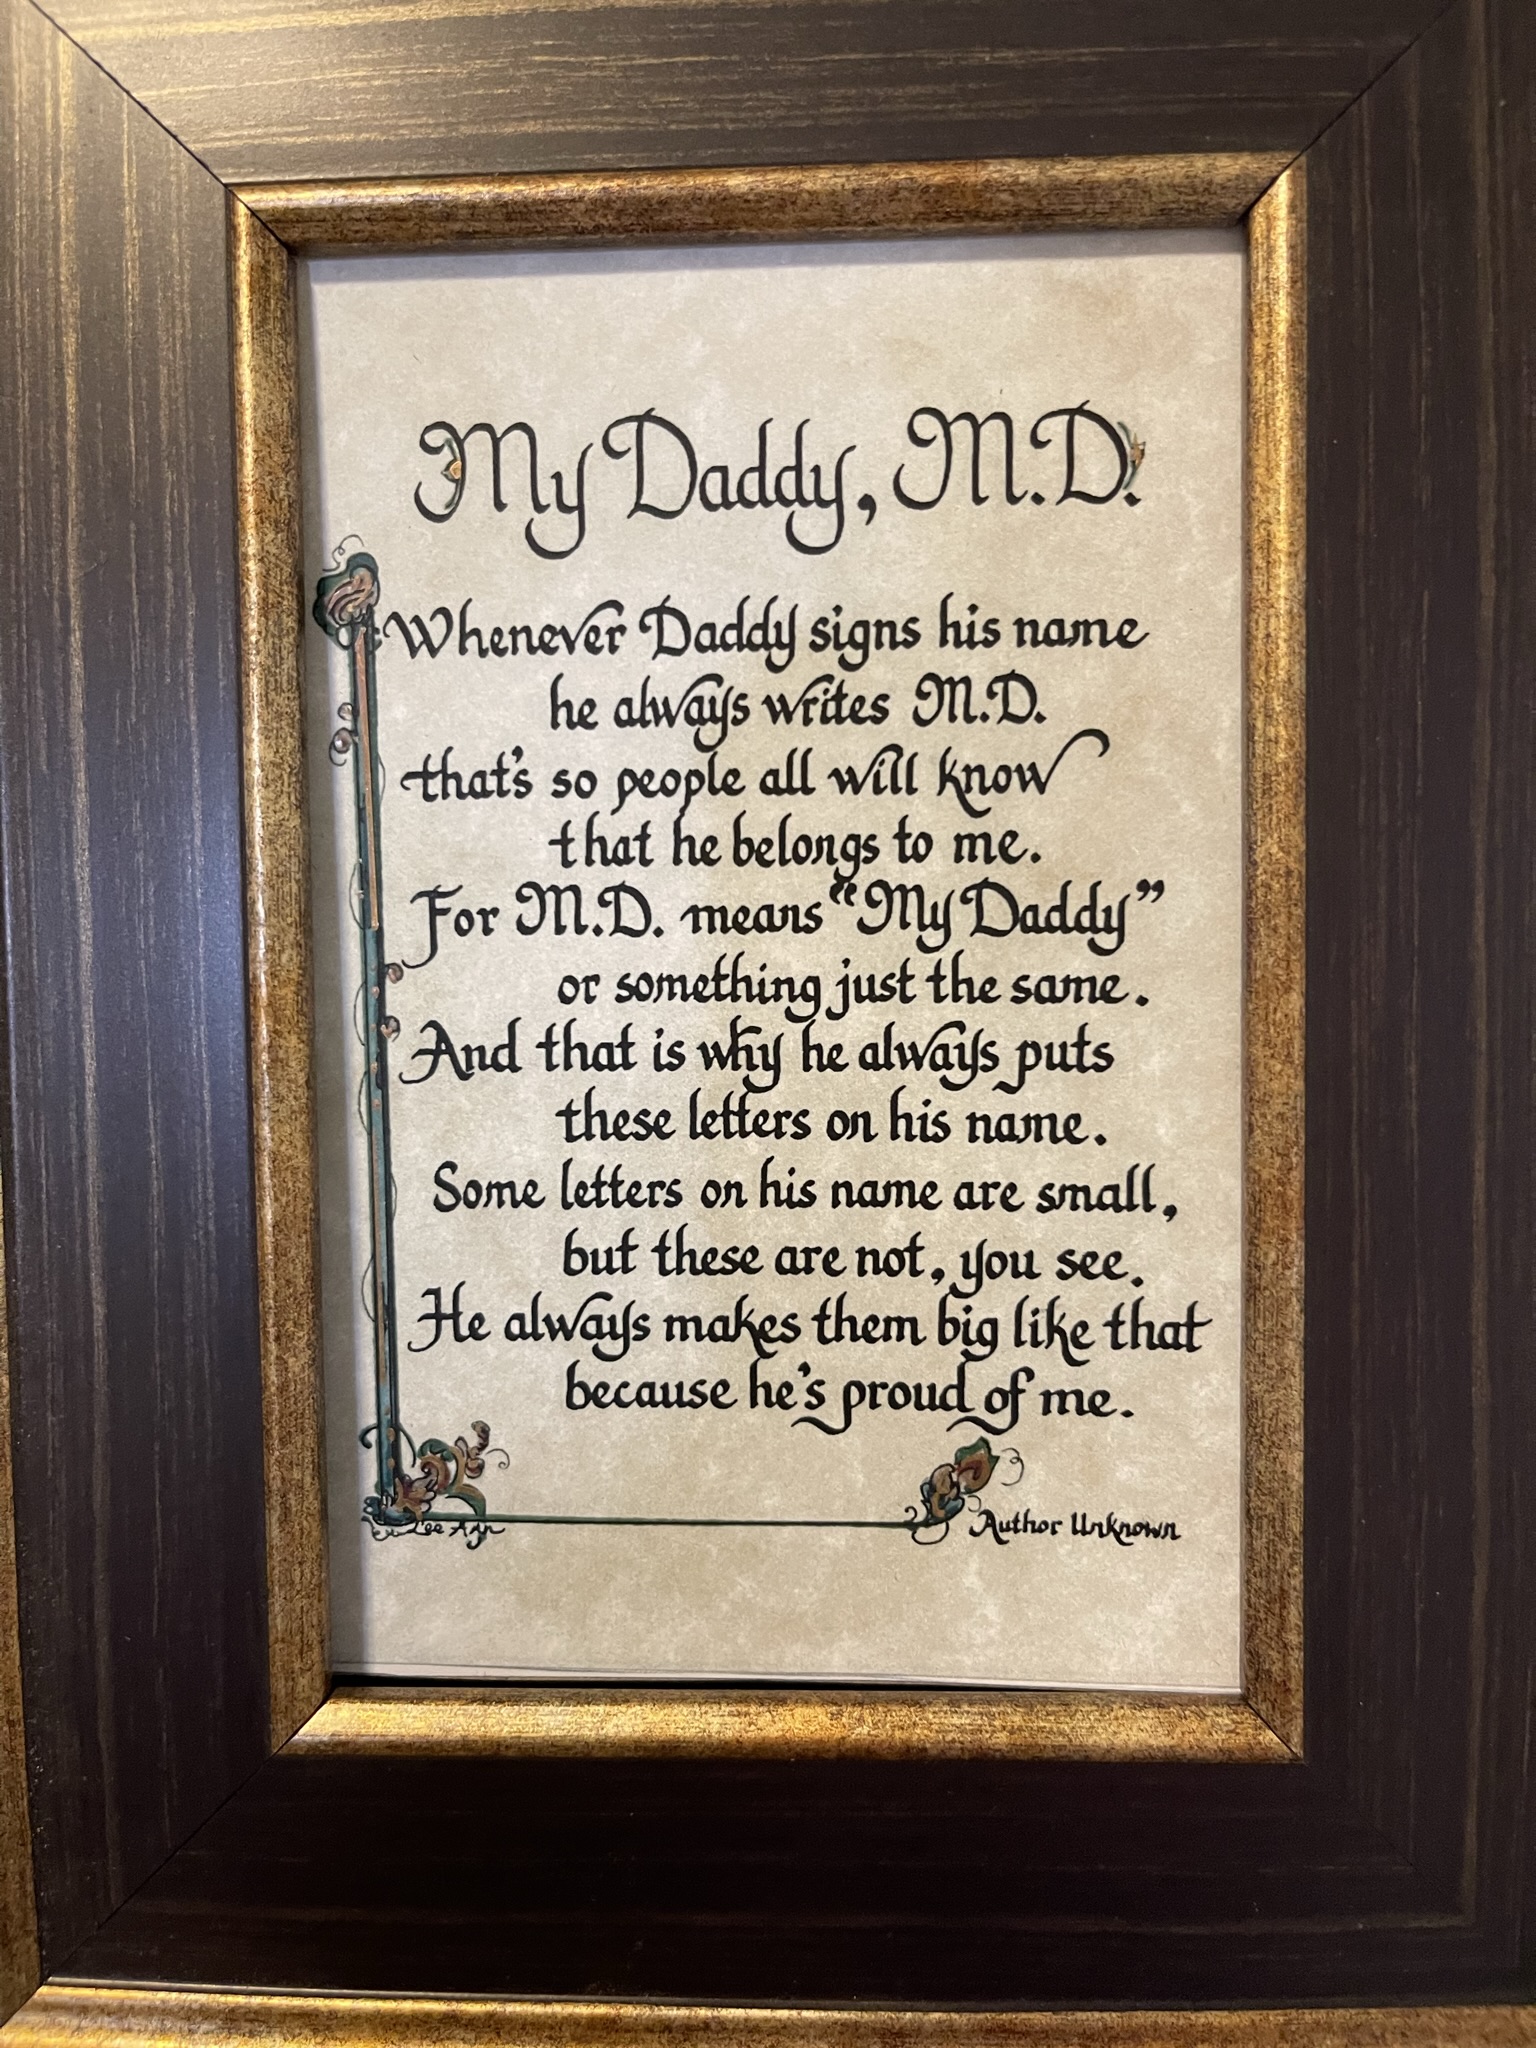 My Daddy, M.D.
Whenever Daddy signs his name
he always writes M.D.
that's so people all will know
that he belongs to me.
For M.D. means "My Daddy"
or something just the same.
And that is why he always puts
these letters on his name.
Some letters on his name are small,
but these are not, you see.
He always makes them big like that
because he's proud of me.
Lee Ann
Author Unknown